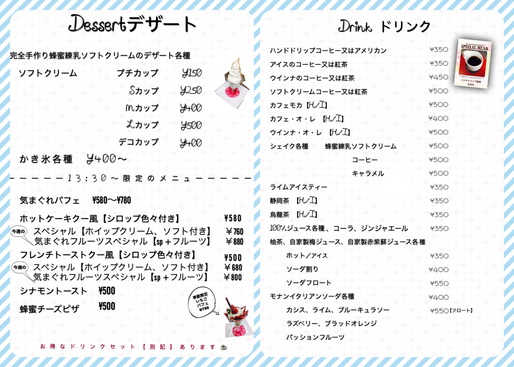 Dessertデザート
完全手作り蜂蜜練乳ソフトクリームのデザート各種
ソフトクリーム プチカップ ¥150
Sカップ ¥250
Mカップ ¥400
Lカップ ¥500
デコカップ ¥400
かき氷各種 ¥400〜
13:30〜限定のメニュー
気まぐれパフェ ¥580〜¥780
ホットケーキクー風【シロップ色々付き】 ¥580
今週の スペシャル【ホイップクリーム、ソフト付き】 ¥760
気まぐれフルーツスペシャル【sp+フルーツ】 ¥880
フレンチトーストクー風【シロップ色々付き】 ¥500
今週の スペシャル【ホイップクリーム、ソフト付き】 ¥680
気まぐれフルーツスペシャル【sp+フルーツ】 ¥800
シナモントースト ¥500
蜂蜜チーズピザ ¥500
いちご
パフェ
お得なドリンクセット【別記】あります
Drink ドリンク
ハンドドリップコーヒー又はアメリカン ¥350
アイスのコーヒー又は紅茶 ¥350
ウインナのコーヒー又は紅茶 ¥450
ソフトクリームコーヒー又は紅茶 ¥500
カフェモカ【H/I】 ¥500
カフェ・オ・レ 【H/I】 ¥400
ウインナ・オ・レ 【H/I】 ¥500
シェイク各種 蜂蜜練乳ソフトクリーム ¥500
コーヒー ¥500
キャラメル ¥500
ライムアイスティー ¥350
静岡茶 【H/I】 ¥350
烏龍茶 【H/I】 ¥350
100%ジュース各種、コーラ、ジンジャエール ¥350
柚茶、自家製梅ジュース、自家製赤紫蘇ジュース各種
ホット/アイス ¥350
ソーダ割り ¥400
ソーダフロート ¥550
モナンイタリアンソーダ各種 ¥400
カシス、ライム、ブルーキュラソー ¥550【フロート】
ラズベリー、ブラッドオレンジ
パッションフルーツ